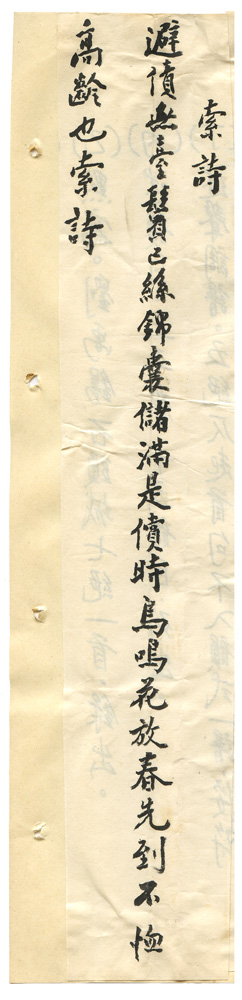 索詩
避債無臺鬢已絲錦囊儲滿是償時鳥鳴花放春先到不恤
高齡也索詩